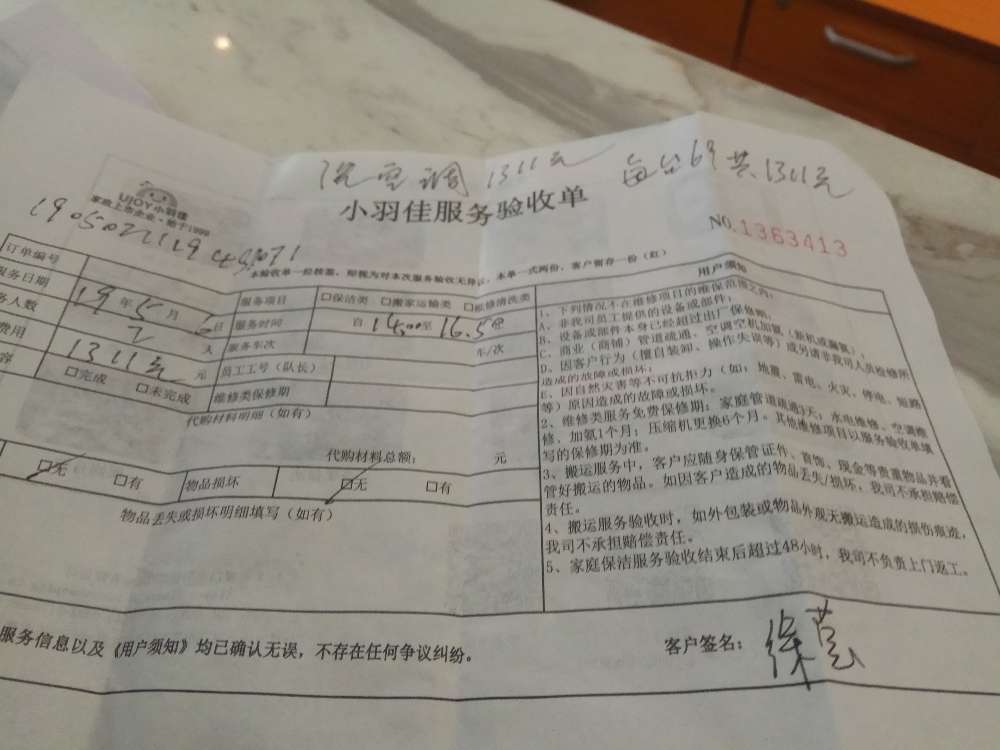 洗空调 1311元 每台69 共1311元
UJOY小羽佳
家政上市企业·始于1998
小羽佳服务验收单
NO.1363413
本验收单一经核签，即视为对本次服务验收无异议；本单一式两份，客户留存一份（红）
订单编号
服务日期 19年5月6日
务人数 2 人
费用 1311元 元
容 □完成 □未完成
服务项目 □保洁类 □搬家运输类 □维修清洗类
服务时间 自 14:00 至 16:58
服务车次 车/次
员工工号（队长）
维修类保修期
代购材料明细（如有）
代购材料总额： 元
□无 □有 物品损坏 □无 □有
物品丢失或损坏明细填写（如有）
用户须知
1、下列情况不在维修项目的维保范围之内：
A、非我司员工提供的设备或部件；
B、设备或部件本身已经超过出厂保修期；
C、商业（商铺）管道疏通、空调空机加氟（新机或漏氟）；
D、因客户行为（擅自装卸、操作失误等）或另请非我司人员检修所
造成的故障或损坏；
E、因自然灾害等不可抗拒力（如：地震、雷电、火灾、停电、短路
等）原因造成的故障或损坏。
2、维修类服务免费保修期：家庭管道疏通3天；水电维修、空调维
修、加氟1个月；压缩机更换6个月。其他维修项目以服务验收单填
写的保修期为准。
3、搬运服务中，客户应随身保管证件、首饰、现金等贵重物品并看
管好搬运的物品。如因客户造成的物品丢失/损坏，我司不承担赔偿
责任。
4、搬运服务验收时，如外包装或物品外观无搬运造成的损伤痕迹，
我司不承担赔偿责任。
5、家庭保洁服务验收结束后超过48小时，我司不负责上门返工。
服务信息以及《用户须知》均已确认无误，不存在任何争议纠纷。
客户签名：